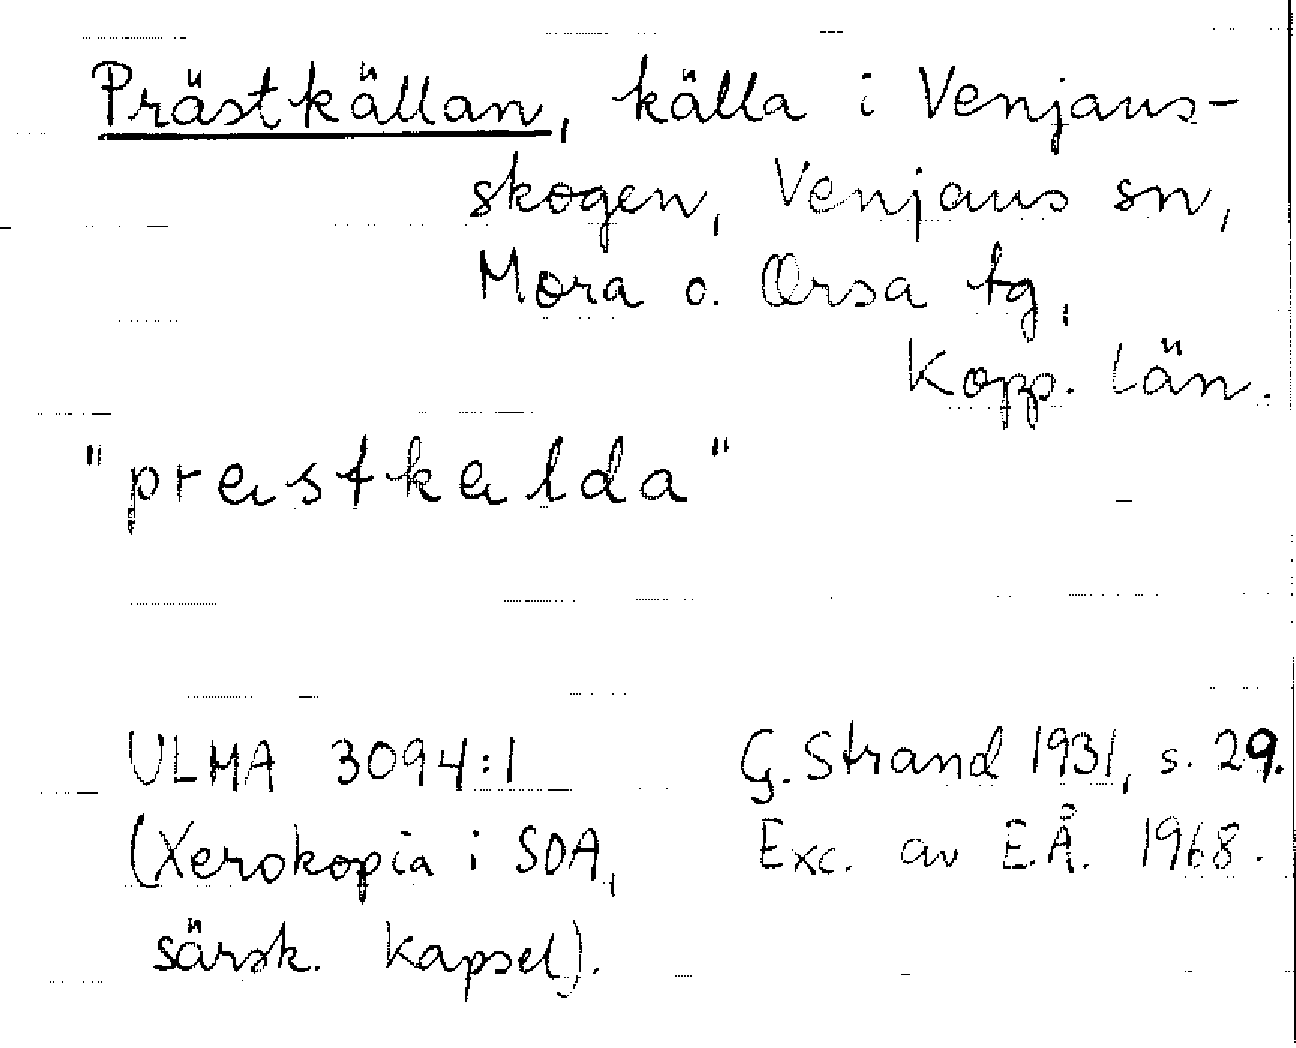 Prästkällan, källa i Venjans-
skogen, Venjans sn,
Mora o. Orsa tg,
Kopp. län.
"præstkælda"
ULMA 3094:1
(Xerokopia i SOA,
särsk. kapsel).
G. Strand 1931, s. 29.
Exc. av E.Å. 1968.